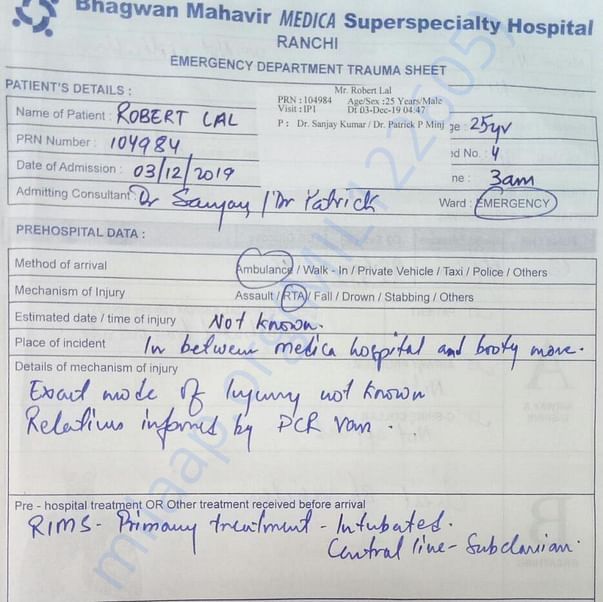 Bhagwan Mahavir MEDICA Superspecialty Hospital
RANCHI
EMERGENCY DEPARTMENT TRAUMA SHEET
PATIENT'S DETAILS :
Mr. Robert Lal
PRN : 104984 Age/Sex :25 Years/Male
Visit :IP1 Dt 03-Dec-19 04:47
P : Dr. Sanjay Kumar / Dr. Patrick P Minj
Name of Patient : ROBERT LAL
ge : 25yr
PRN Number : 104984
ed No. : 4
Date of Admission : 03/12/2019
ne : 3am
Admitting Consultant : Dr Sanjay / Dr Patrick
Ward : EMERGENCY
PREHOSPITAL DATA :
Method of arrival Ambulance / Walk - In / Private Vehicle / Taxi / Police / Others
Mechanism of Injury Assault / RTA / Fall / Drown / Stabbing / Others
Estimated date / time of injury Not known.
Place of incident In between medica hospital and booty more.
Details of mechanism of injury
Exact mode of Injury not known
Relatives informed by PCR van .
Pre - hospital treatment OR Other treatment received before arrival
RIMS - Primary treatment - Intubated.
Central line - Subclavian.